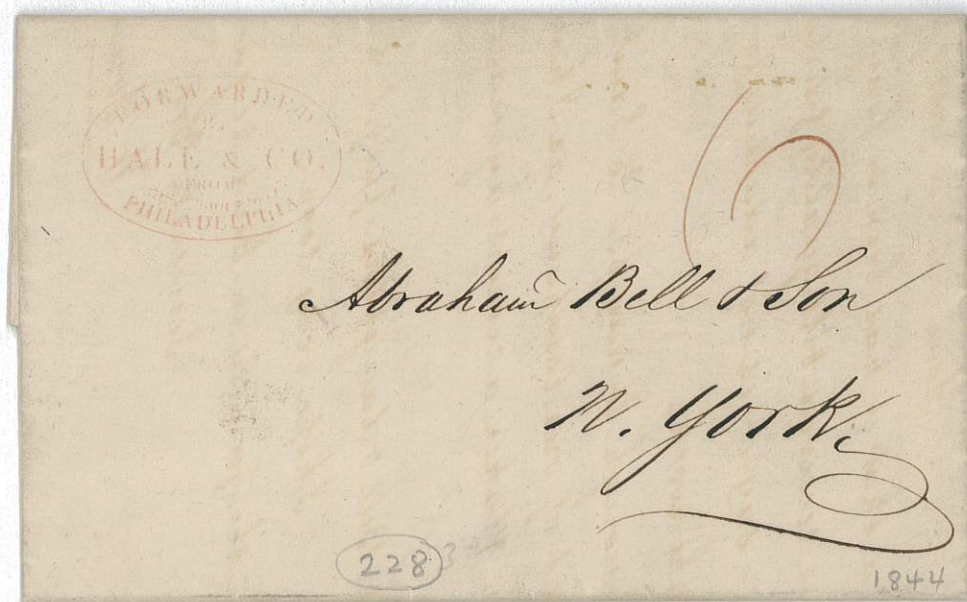 FORWARDED
BY
HALE & CO.
FROM
PHILADELPHIA
6
Abraham Bell & Son
N. York
228
1844